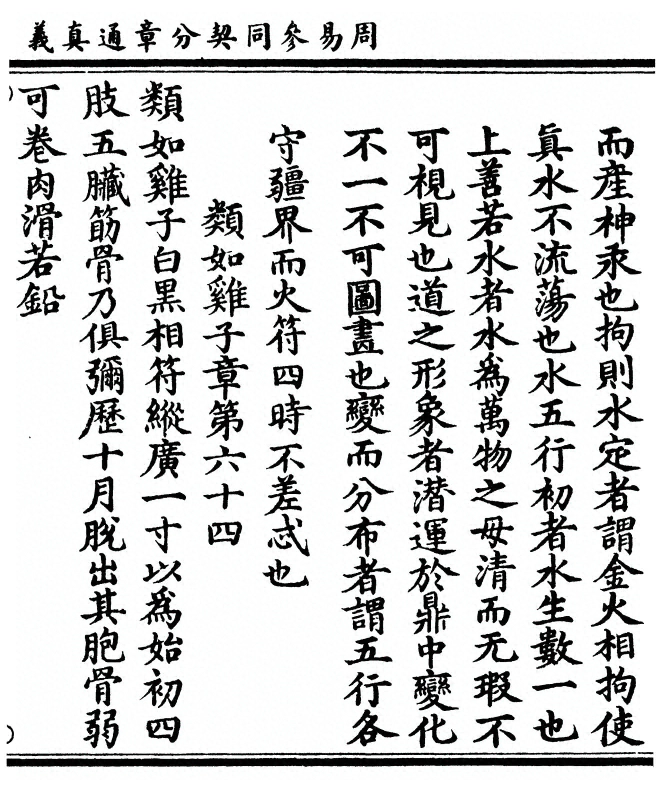 周易參同契分章通真義
而産神汞也拘則水定者謂金火相拘使
眞水不流蕩也水五行初者水生數一也
上善若水者水爲萬物之母清而无瑕不
可視見也道之形象者潛運於鼎中變化
不一不可圖畫也變而分布者謂五行各
守疆界而火符四時不差忒也
類如雞子章第六十四
類如雞子白黑相符縱廣一寸以爲始初四
肢五臟筋骨乃俱彌歷十月脫出其胞骨弱
可卷肉滑若鉛